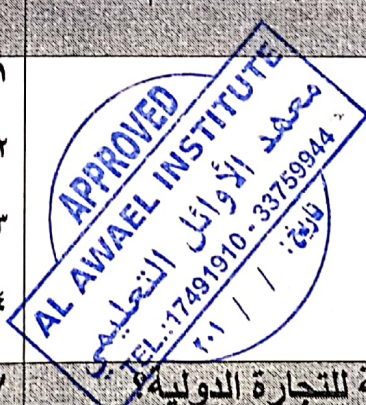 APPROVED
AL AWAEL INSTITUTE
معهد الأوائل التعليمي
TEL.:17491910 - 33759944
تاريخ: / / ٢٠١
٢
٣
٤
للتجارة الدولية؟